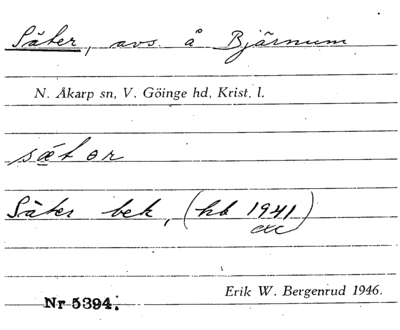 Säter, avs. å Bjärnum
N. Åkarp sn, V. Göinge hd, Krist. l.
sætər
Säter bek, (hb 1941)
exc
Erik W. Bergenrud 1946.
Nr 5394.